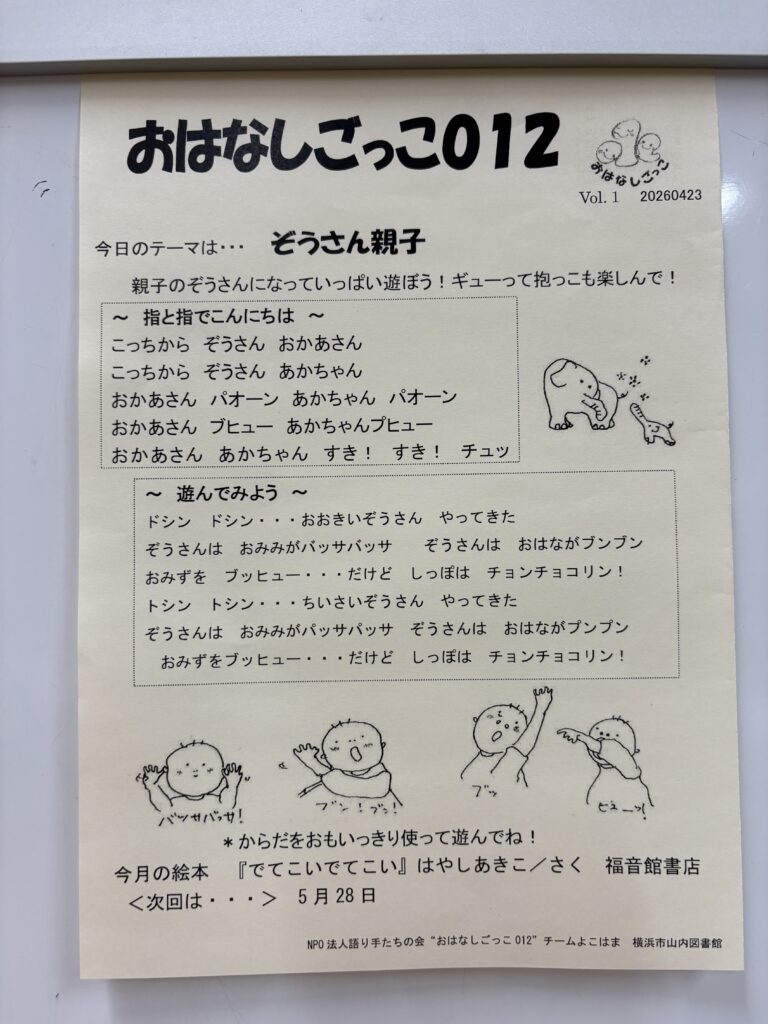 おはなしごっこ012
おはなしごっこ
Vol. 1 20260423
今日のテーマは・・・ ぞうさん親子
親子のぞうさんになっていっぱい遊ぼう！ギューって抱っこも楽しんで！
～ 指と指でこんにちは ～
こっちから ぞうさん おかあさん
こっちから ぞうさん あかちゃん
おかあさん パオーン あかちゃん パオーン
おかあさん ブヒュー あかちゃんプヒュー
おかあさん あかちゃん すき！ すき！ チュッ
～ 遊んでみよう ～
ドシン ドシン・・・おおきいぞうさん やってきた
ぞうさんは おみみがバッサバッサ ぞうさんは おはながブンブン
おみずを ブッヒュー・・・だけど しっぽは チョンチョコリン！
トシン トシン・・・ちいさいぞうさん やってきた
ぞうさんは おみみがパッサパッサ ぞうさんは おはながプンプン
おみずをブッヒュー・・・だけど しっぽは チョンチョコリン！
バッサバッサ！
ブン！ブン！
ブッ
ヒューッ！
＊からだをおもいっきり使って遊んでね！
今月の絵本 『でてこいでてこい』はやしあきこ／さく 福音館書店
＜次回は・・・＞ 5月28日
NPO法人語り手たちの会“おはなしごっこ012”チームよこはま 横浜市山内図書館